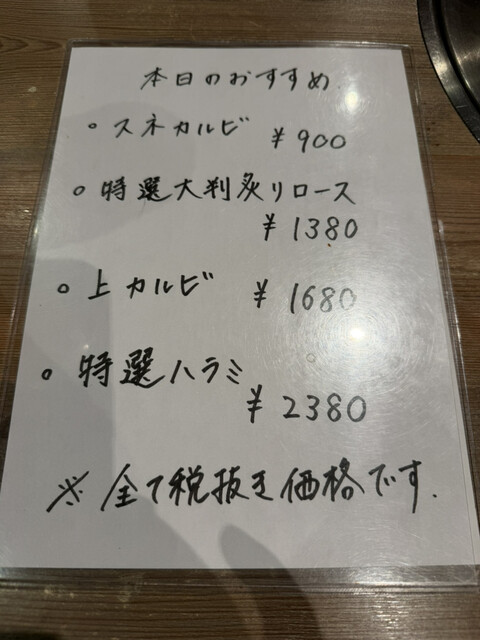 本日のおすすめ
○ スネカルビ ¥900
○ 特選大判炙リロース
¥1380
○ 上カルビ ¥1680
○ 特選ハラミ
¥2380
※ 全て税抜き価格です.